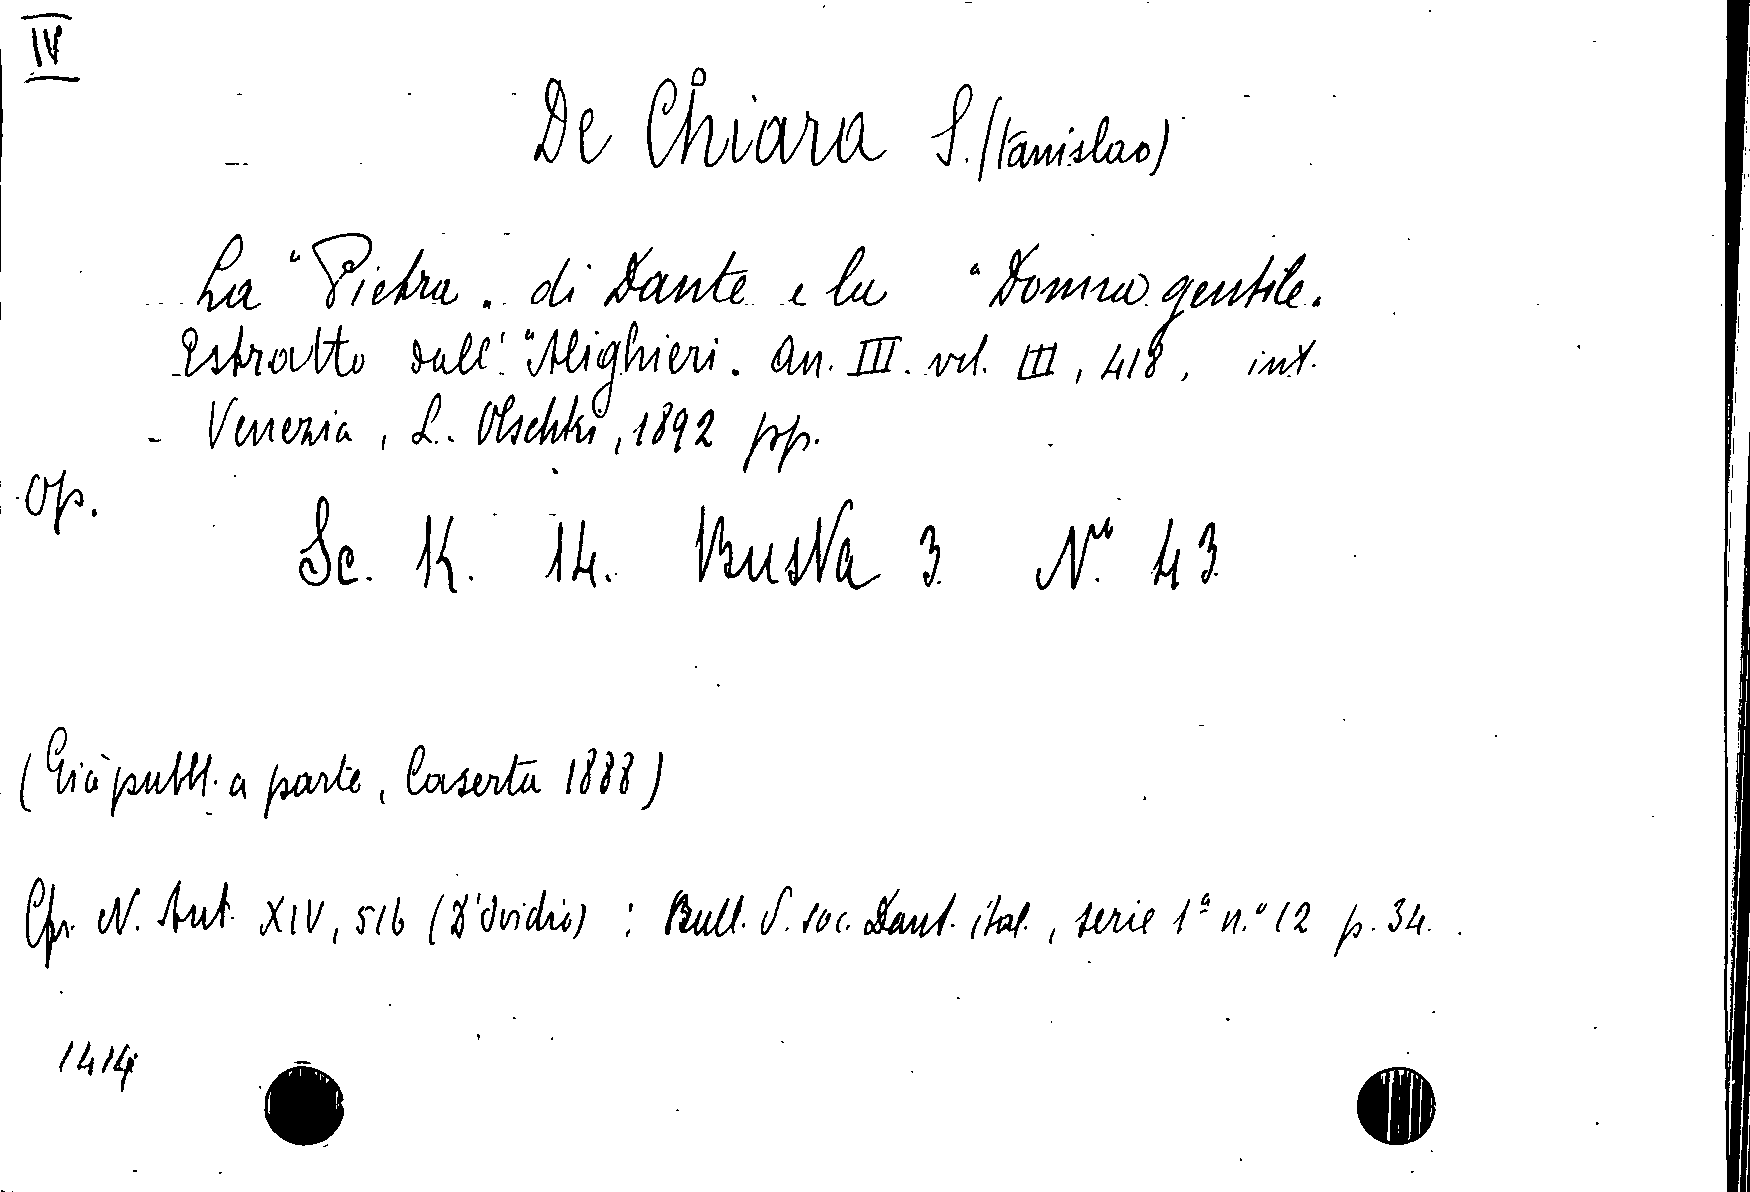 IV
De Chiara S. (Stanislao)
La "Pietra„ di Dante e la "Donna gentile„
Estratto dall' "Alighieri„ An. III. vol. III, 418, int.
- Venezia, L. Olschki, 1892 pp.
Op.
Sc. K. 14. Busta 3 N.º 43
(Già pubbl. a parte, Caserta 1888)
Cfr. N. Ant. XIV, 516 (D'Ovidio) : Bull. d. soc. Dant. ital., serie 1ª n.º 12 p. 34.
1414